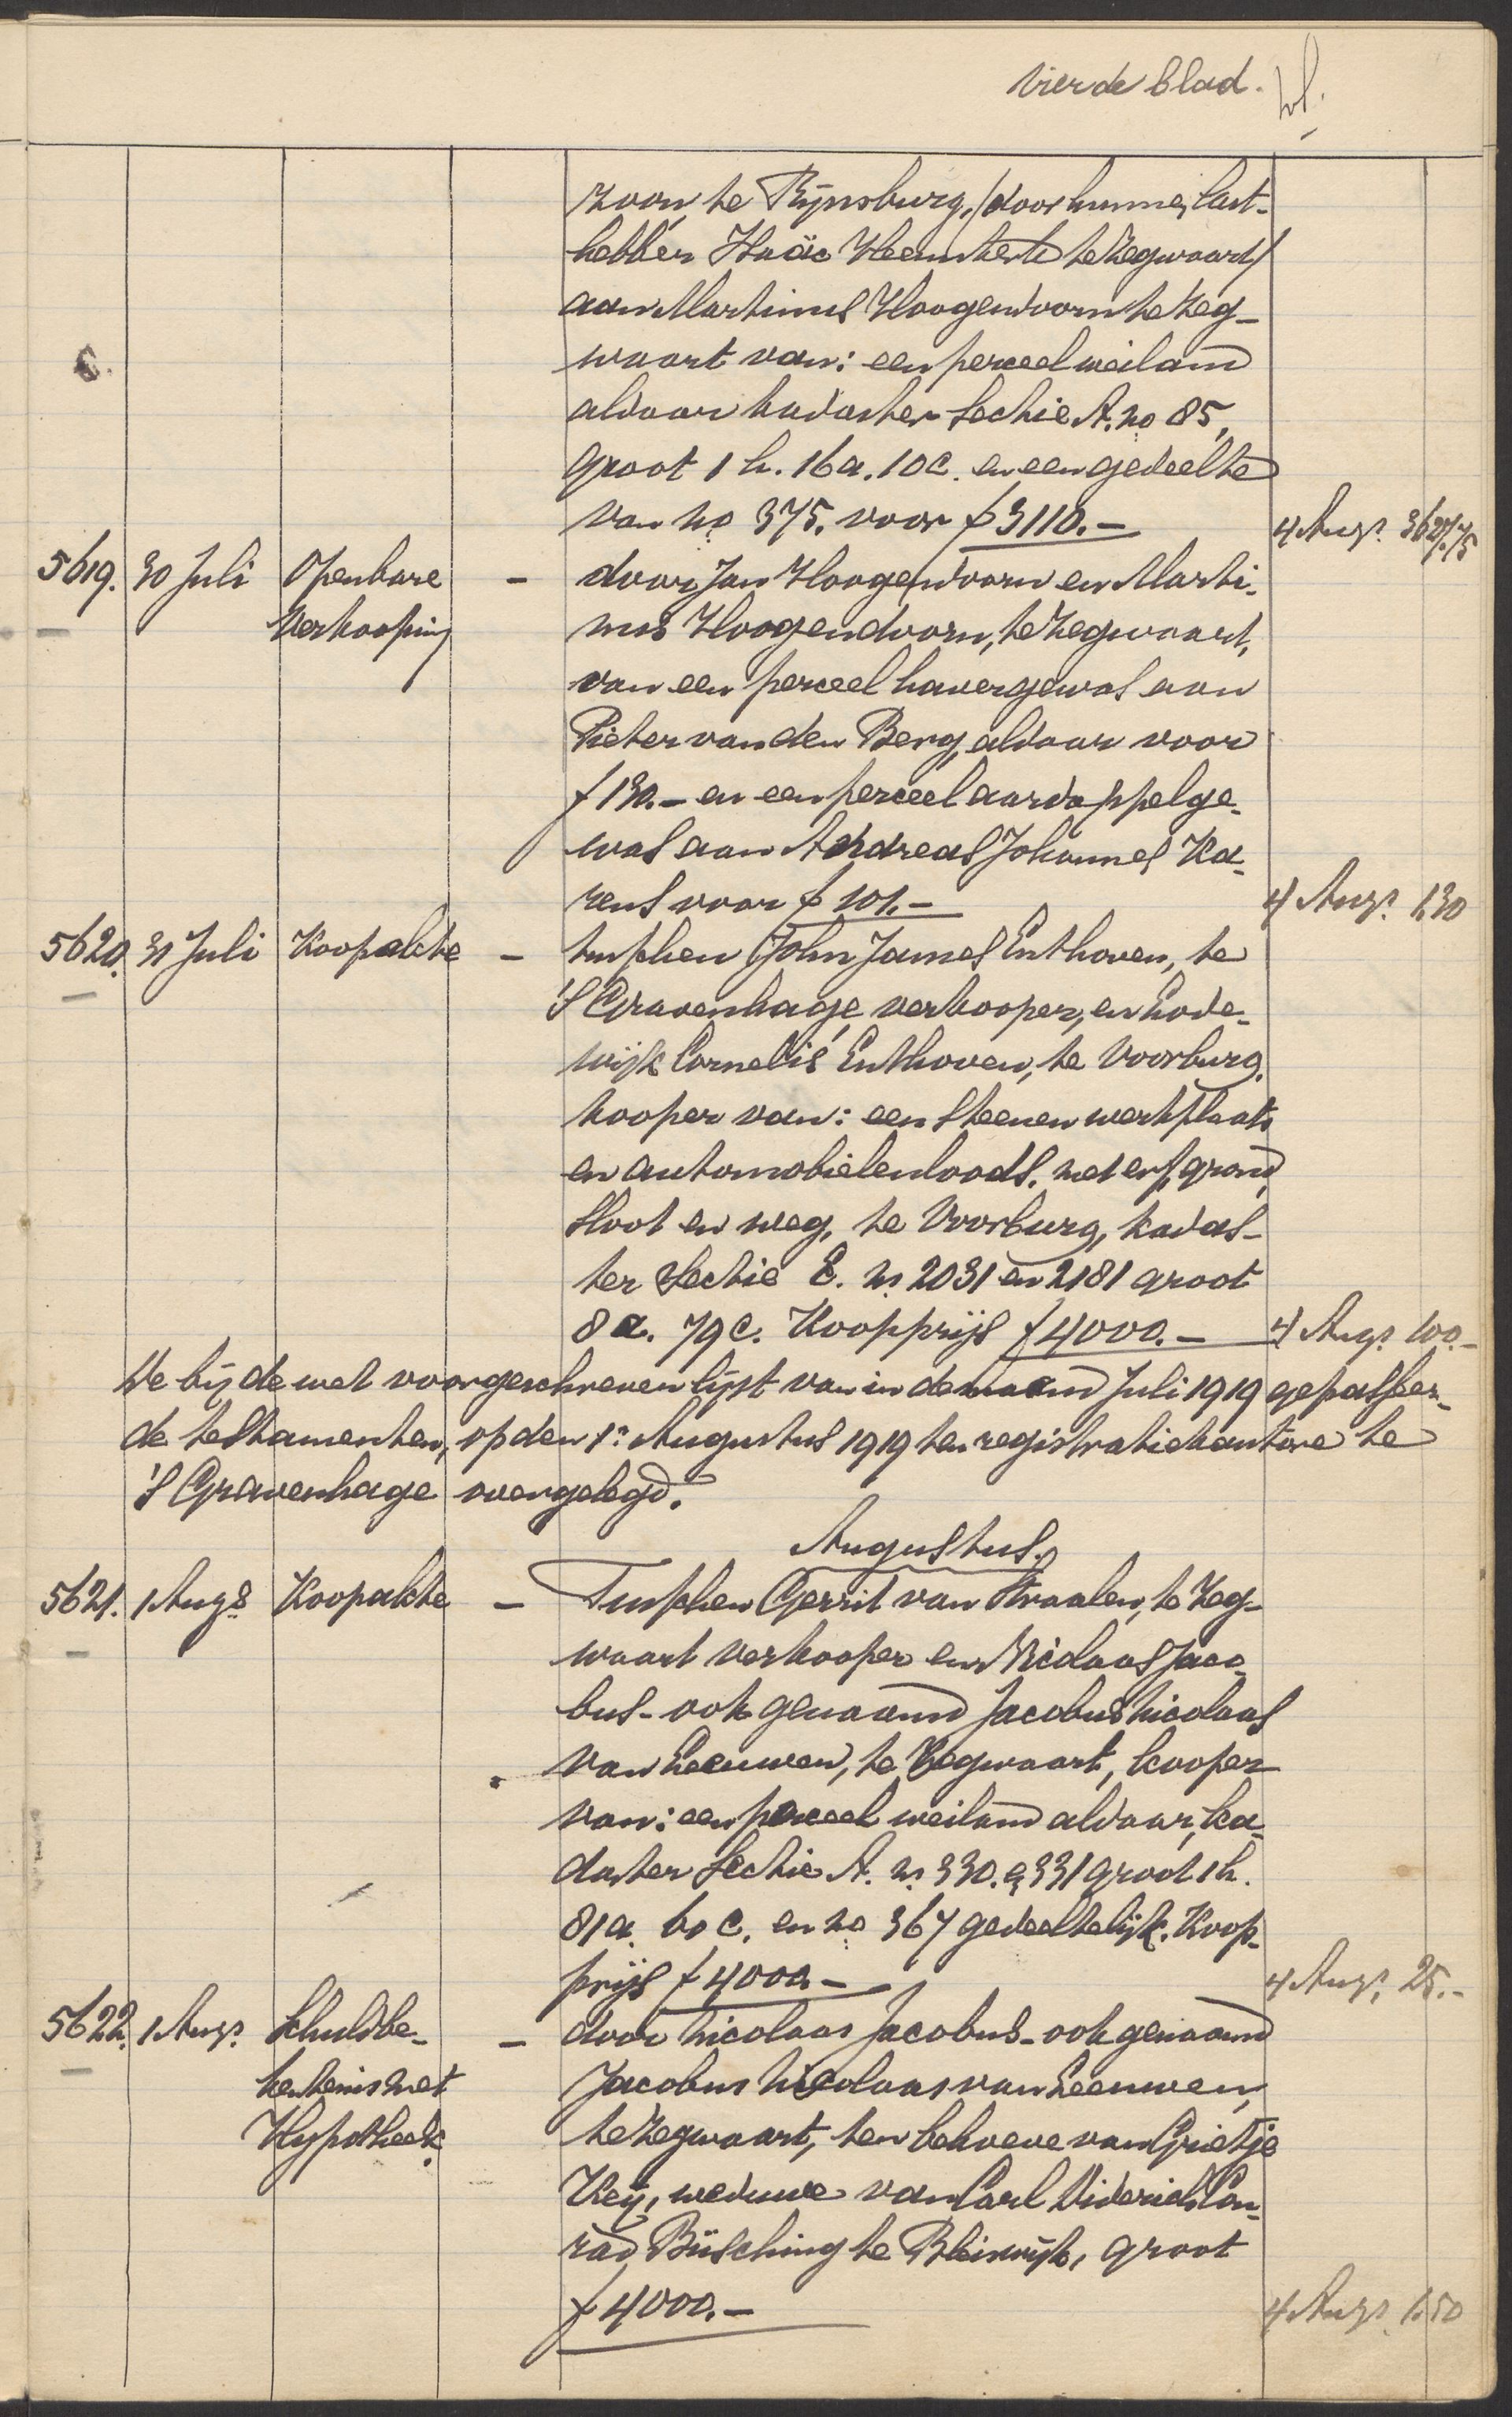 Vierde blad.
zoon, te Rijnsburg, (door hunne last-
hebber Isaäc Heemskerk te Zegwaart)
aan Martinus Hoogendoorn te Zeg-
waart van: een perceel weiland
aldaar kadaster Sectie A. no 85,
groot 1 h. 16 a. 10 c. en een gedeelte
van no 375. voor f 3110.- 4 Augs.
5619. 30 Juli Openbare - door Jan Hoogendoorn en Marti-
Verkooping nus Hoogendoorn, te Zegwaart,
van een perceel havergewas aan
Pieter van den Berg, aldaar voor
f 130.- en een perceel aardappelge-
was aan Andreas Johannes Ka-
rens voor f 101.- 4 Augs. 1,30
5620. 31 Juli Koopakte - tusschen John James Enthoven, te
's Gravenhage, verkooper, en Lode-
wijk Cornelis Enthoven, te Voorburg,
kooper van: een steenen werkplaats
en automobielenloods, met erf, grond,
sloot en weg, te Voorburg, kadas-
ter Sectie E. ns 2031 en 2181 groot
8 a. 79 c. Koopprijs f 4000.- 4 Augs. 100.-
De bij de wet voorgeschreven lijst van in de maand Juli 1919 gepasseer-
de testamenten, op den 1n Augustus 1919 ten registratiekantore te
's Gravenhage overgelegd.
Augustus.
5621. 1 Augs Koopakte - Tusschen Gerrit van Straalen, te Zeg-
waart verkooper en Nicolaas Jaco-
bus - ook genaamd Jacobus Nicolaas
van Leeuwen, te Zegwaart, kooper
van: een perceel weiland aldaar, ka-
daster Sectie A. ns 330. & 331 groot 1 h.
81 a. 60 c. en no 367 gedeeltelijk. Koop-
prijs f 4000.- 4 Augs. 25.-
5622. 1 Augs. Schuldbe- - door Nicolaas Jacobus - ook genaamd
kentenis met Jacobus Nicolaas van Leeuwen,
Hypotheek. te Zegwaart, ten behoeve van Grietje
Keij, weduwe van Carl Diderich Con-
rad Büsching te Bleiswijk, groot
f 4000.- 4 Augs. 1.50